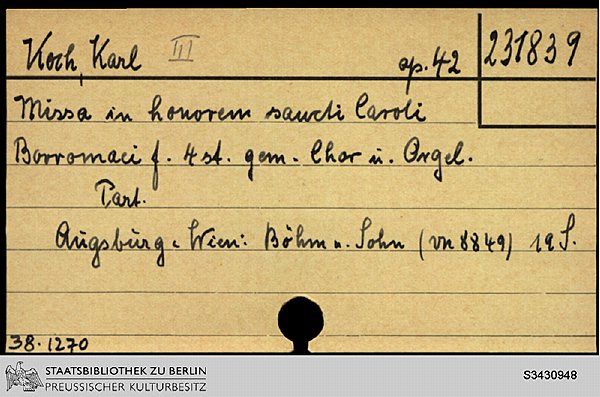 Koch, Karl III op. 42 231839
Missa in honorem sancti Caroli
Borromaei f. 4st. gem. Chor u. Orgel.
Part.
Augsburg u. Wien: Böhm u. Sohn (VN 8849) 19 S.
38.1270
STAATSBIBLIOTHEK ZU BERLIN
PREUSSISCHER KULTURBESITZ
S3430948